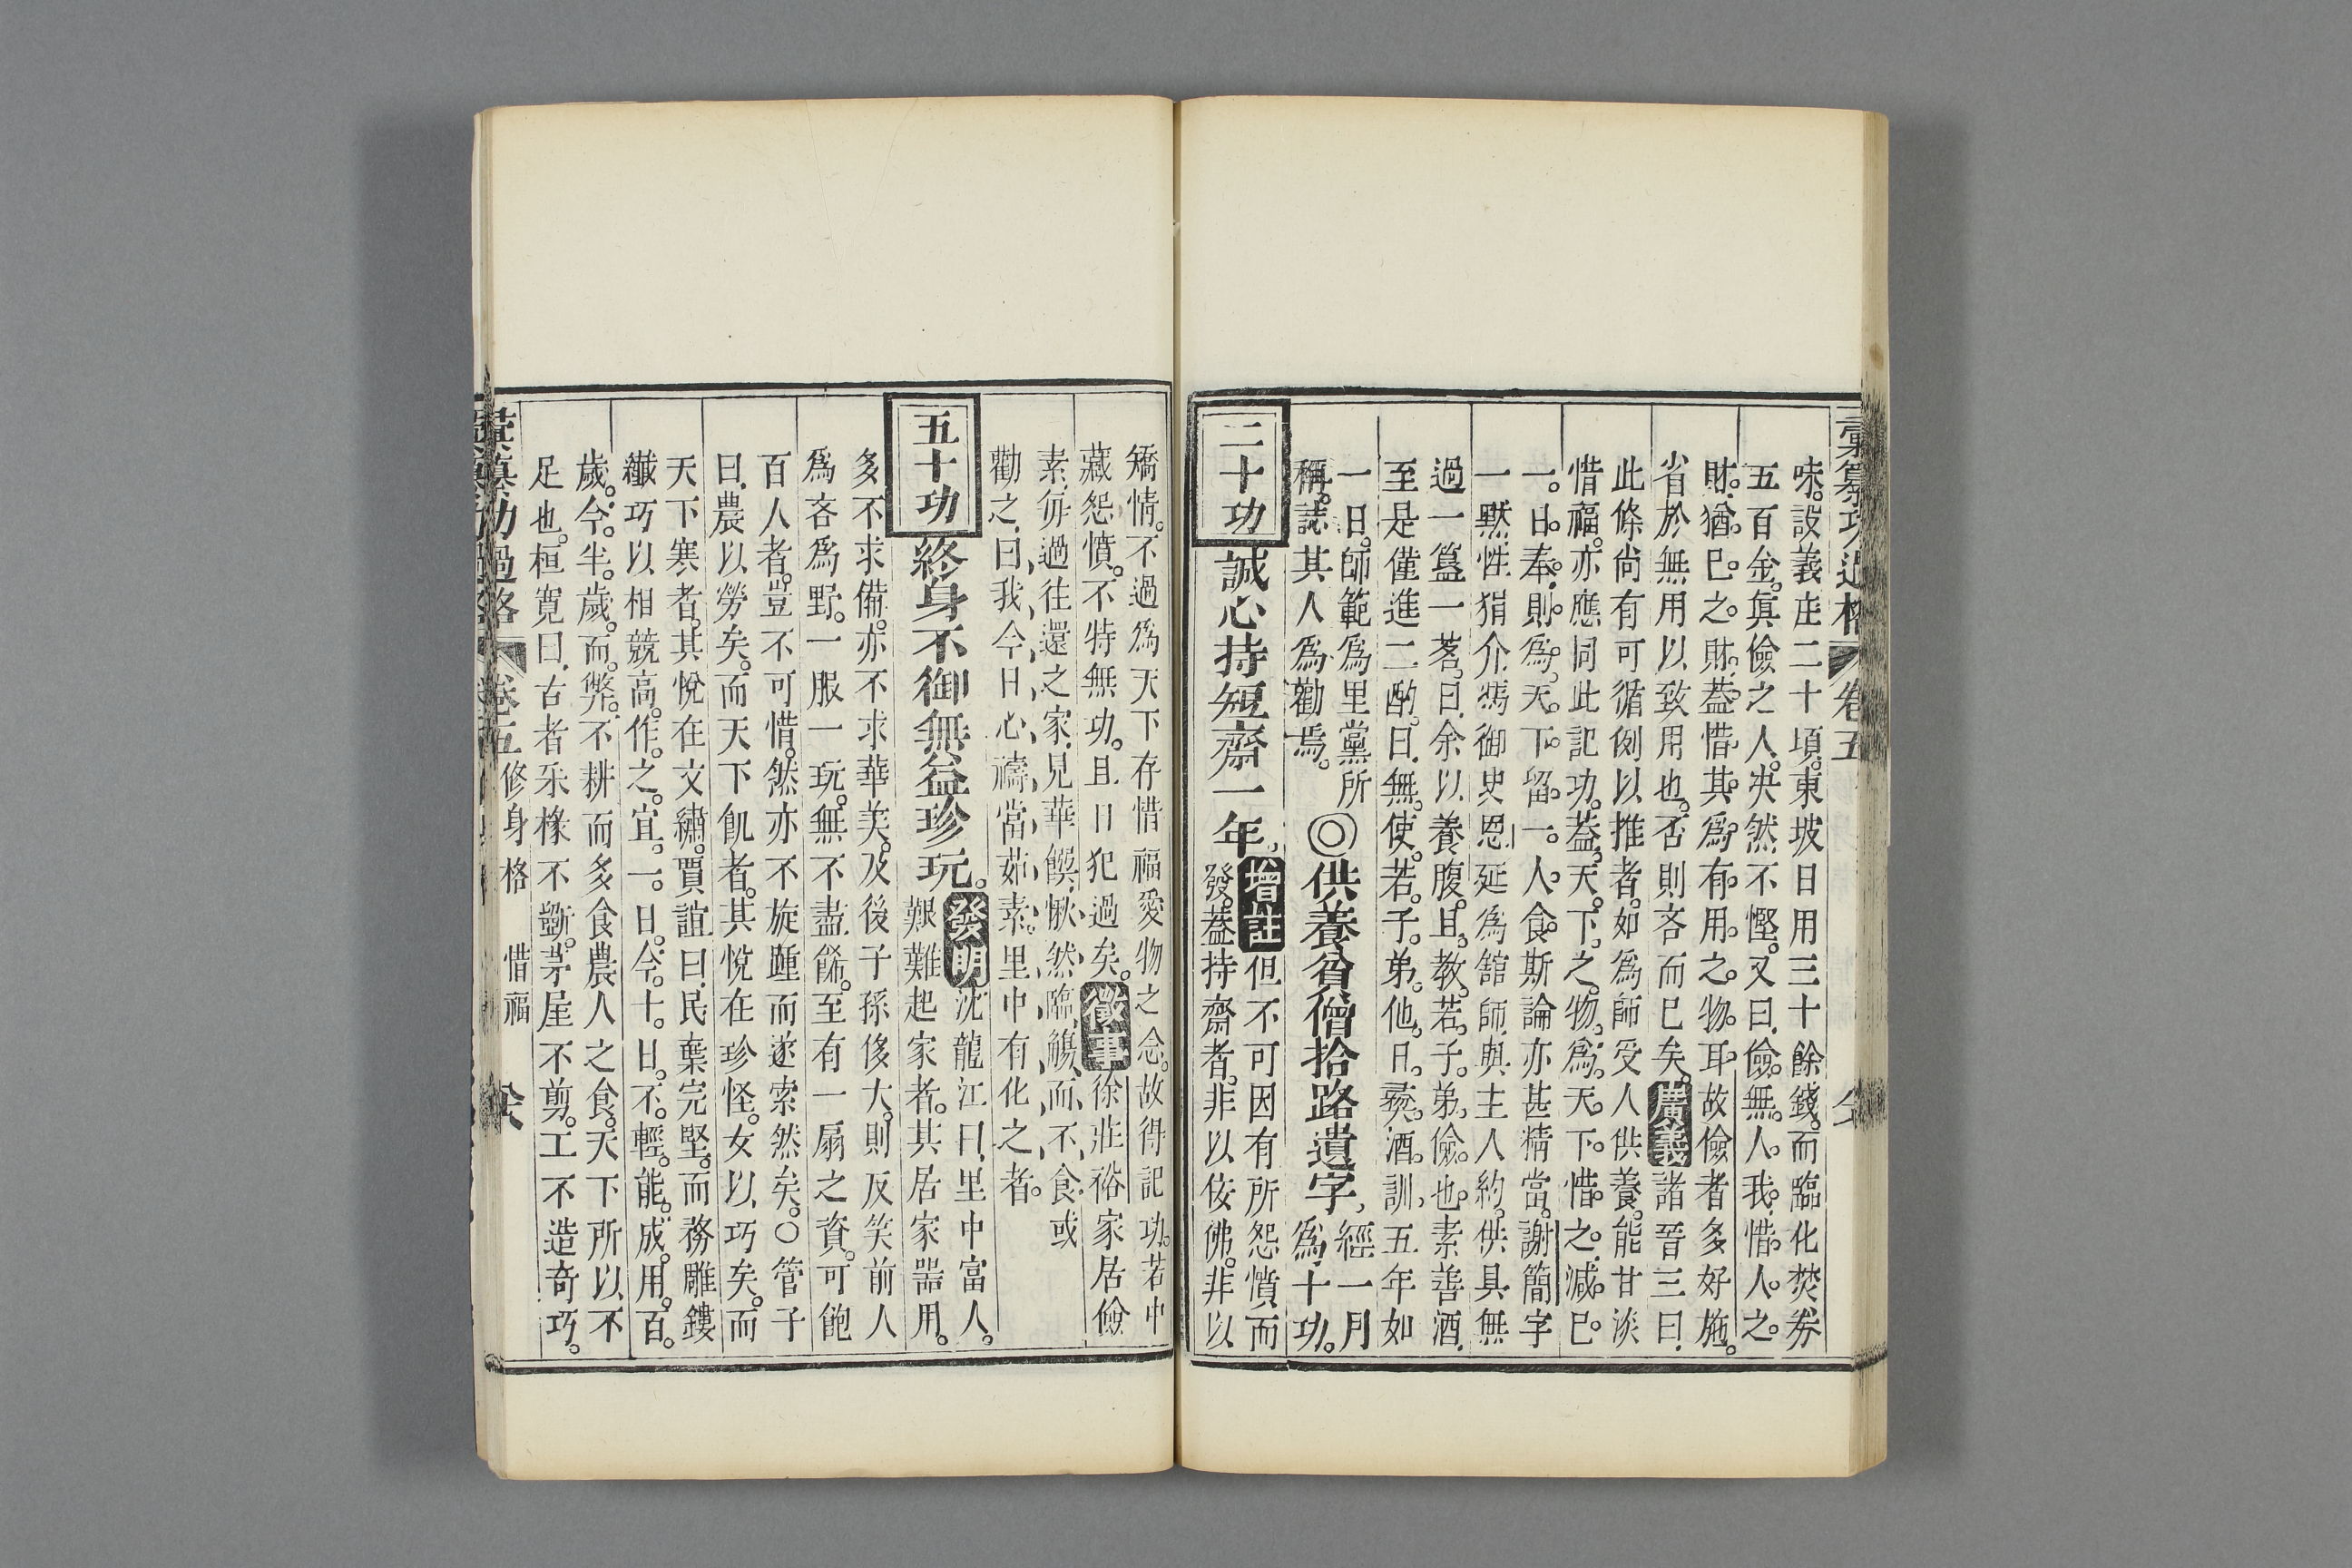 彙纂功過格 卷五
味。設義庄二十頃。東坡日用三十餘錢。而臨化焚券
五百金。眞儉之人。夬然不慳。又曰。儉。無人我。惜人之
財。猶己之財。葢惜其爲有用之物耳。故儉者多好施。
省於無用以致用也。否則吝而已矣。廣義諸晉三曰。
此條尙有可循例以推者。如爲師受人供養。能甘淡
惜福。亦應同此記功。葢天下之物。爲天下惜之。減己
一日奉。則爲天下留一人食。斯論亦甚精當。謝簡字
一默。性狷介。馮御史恩延爲舘師。與主人約。供具無
過一簋一茗。曰。余以養腹。且教若子弟儉也。素善酒。
至是僅進二酌。曰。無使若子弟他日褻酒訓。五年如
一日。師範爲里黨所
稱。誌其人爲勸焉。
◎供養貧僧拾路遺字。經一月
爲十功。
二十功
誠心持短齋一年。增註但不可因有所怨憤而
發。葢持齋者。非以佞佛。非以
矯情。不過爲天下存惜福愛物之念。故得記功。若中
藏怨憤。不特無功。且日犯過矣。徵事徐莊裕家居儉
素。每過往還之家。見華饌。愀然臨觴而不食。或
勸之。曰。我今日心禱當茹素。里中有化之者。
五十功
終身不御無益珍玩。發明沈龍江曰。里中富人。
艱難起家者。其居家器用。
多不求備。亦不求華美。及後子孫侈大。則反笑前人
爲吝爲野。一服一玩。無不盡餙。至有一扇之資。可飽
百人者。豈不可惜。然亦不旋踵而遂索然矣。○管子
曰。農以勞矣。而天下飢者。其悅在珍怪。女以巧矣。而
天下寒者。其悅在文繡。賈誼曰。民棄完堅。而務雕鏤
纖巧以相競高。作之宜一日。今十日不輕能成。用百
歲。今半歲而弊。不耕而多食農人之食。天下所以不
足也。桓寬曰。古者采椽不斲。茅屋不剪。工不造奇巧。
彙纂功過格 卷五 修身格 惜福